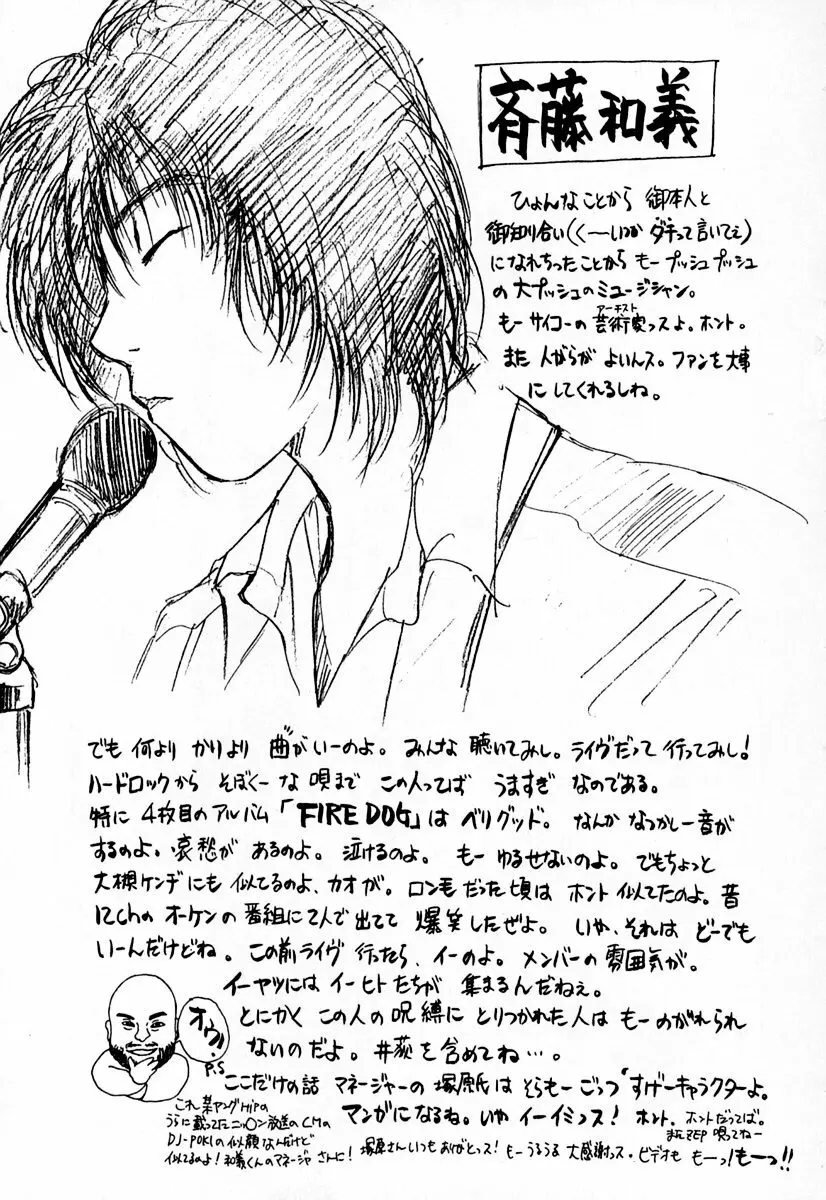 斉藤和義
ひょんなことから 御本人と
御知り合い(く〜いつか ダチって言いてぇ)
になれちったことから もープッシュプッシュ
の大プッシュのミュージシャン。
アーチスト
もー サイコーの 芸術家っスよ。ホント。
また 人がらが よいんス。ファンを大事
にしてくれるしね。
でも 何より かりより 曲がいーのよ。みんな 聴いてみし。ライヴだって 行ってみし!
ハードロックから そぼくーな 唄まで この人ってば うますぎ なのである。
特に 4枚目のアルバム「FIRE DOG」は ベリグッド。なんか なつかしー音が
するのよ。哀愁が あるのよ。泣けるのよ。もー ゆるせないのよ。でもちょっと
大槻ケンヂにも 似てるのよ、カオが。ロン毛だった頃は ホント 似てたのよ。昔
12chの オーケンの 番組に2人で出てて 爆笑したぜよ。いや、それは どーでも
いーんだけどね。この前ライヴ 行ったら、イーのよ。メンバーの 雰囲気が。
イーヤツには イーヒトたちが 集まるんだねぇ。
とにかく この人の呪縛に とりつかれた人は もーのがれられ
ないのだよ。井荻を含めてね…。
オウ!
P.S
ここだけの話 マネージャーの 塚原氏は そらもー ごっつ すげーキャラクターよ。
マンガになるね。いや イーイミっス! ホント。ホントだってば。
また 唄ってねー
これ 某ヤングHipの
うらに載ってたニッ○ン放送のCMの
DJ-POKIの似顔なんだけど
似てるのよ!和義くんのマネージャさんに!
塚原さんいつもありがとっス! もーうるうる 大感謝っス・ビデオも もーっ!もーっ!!